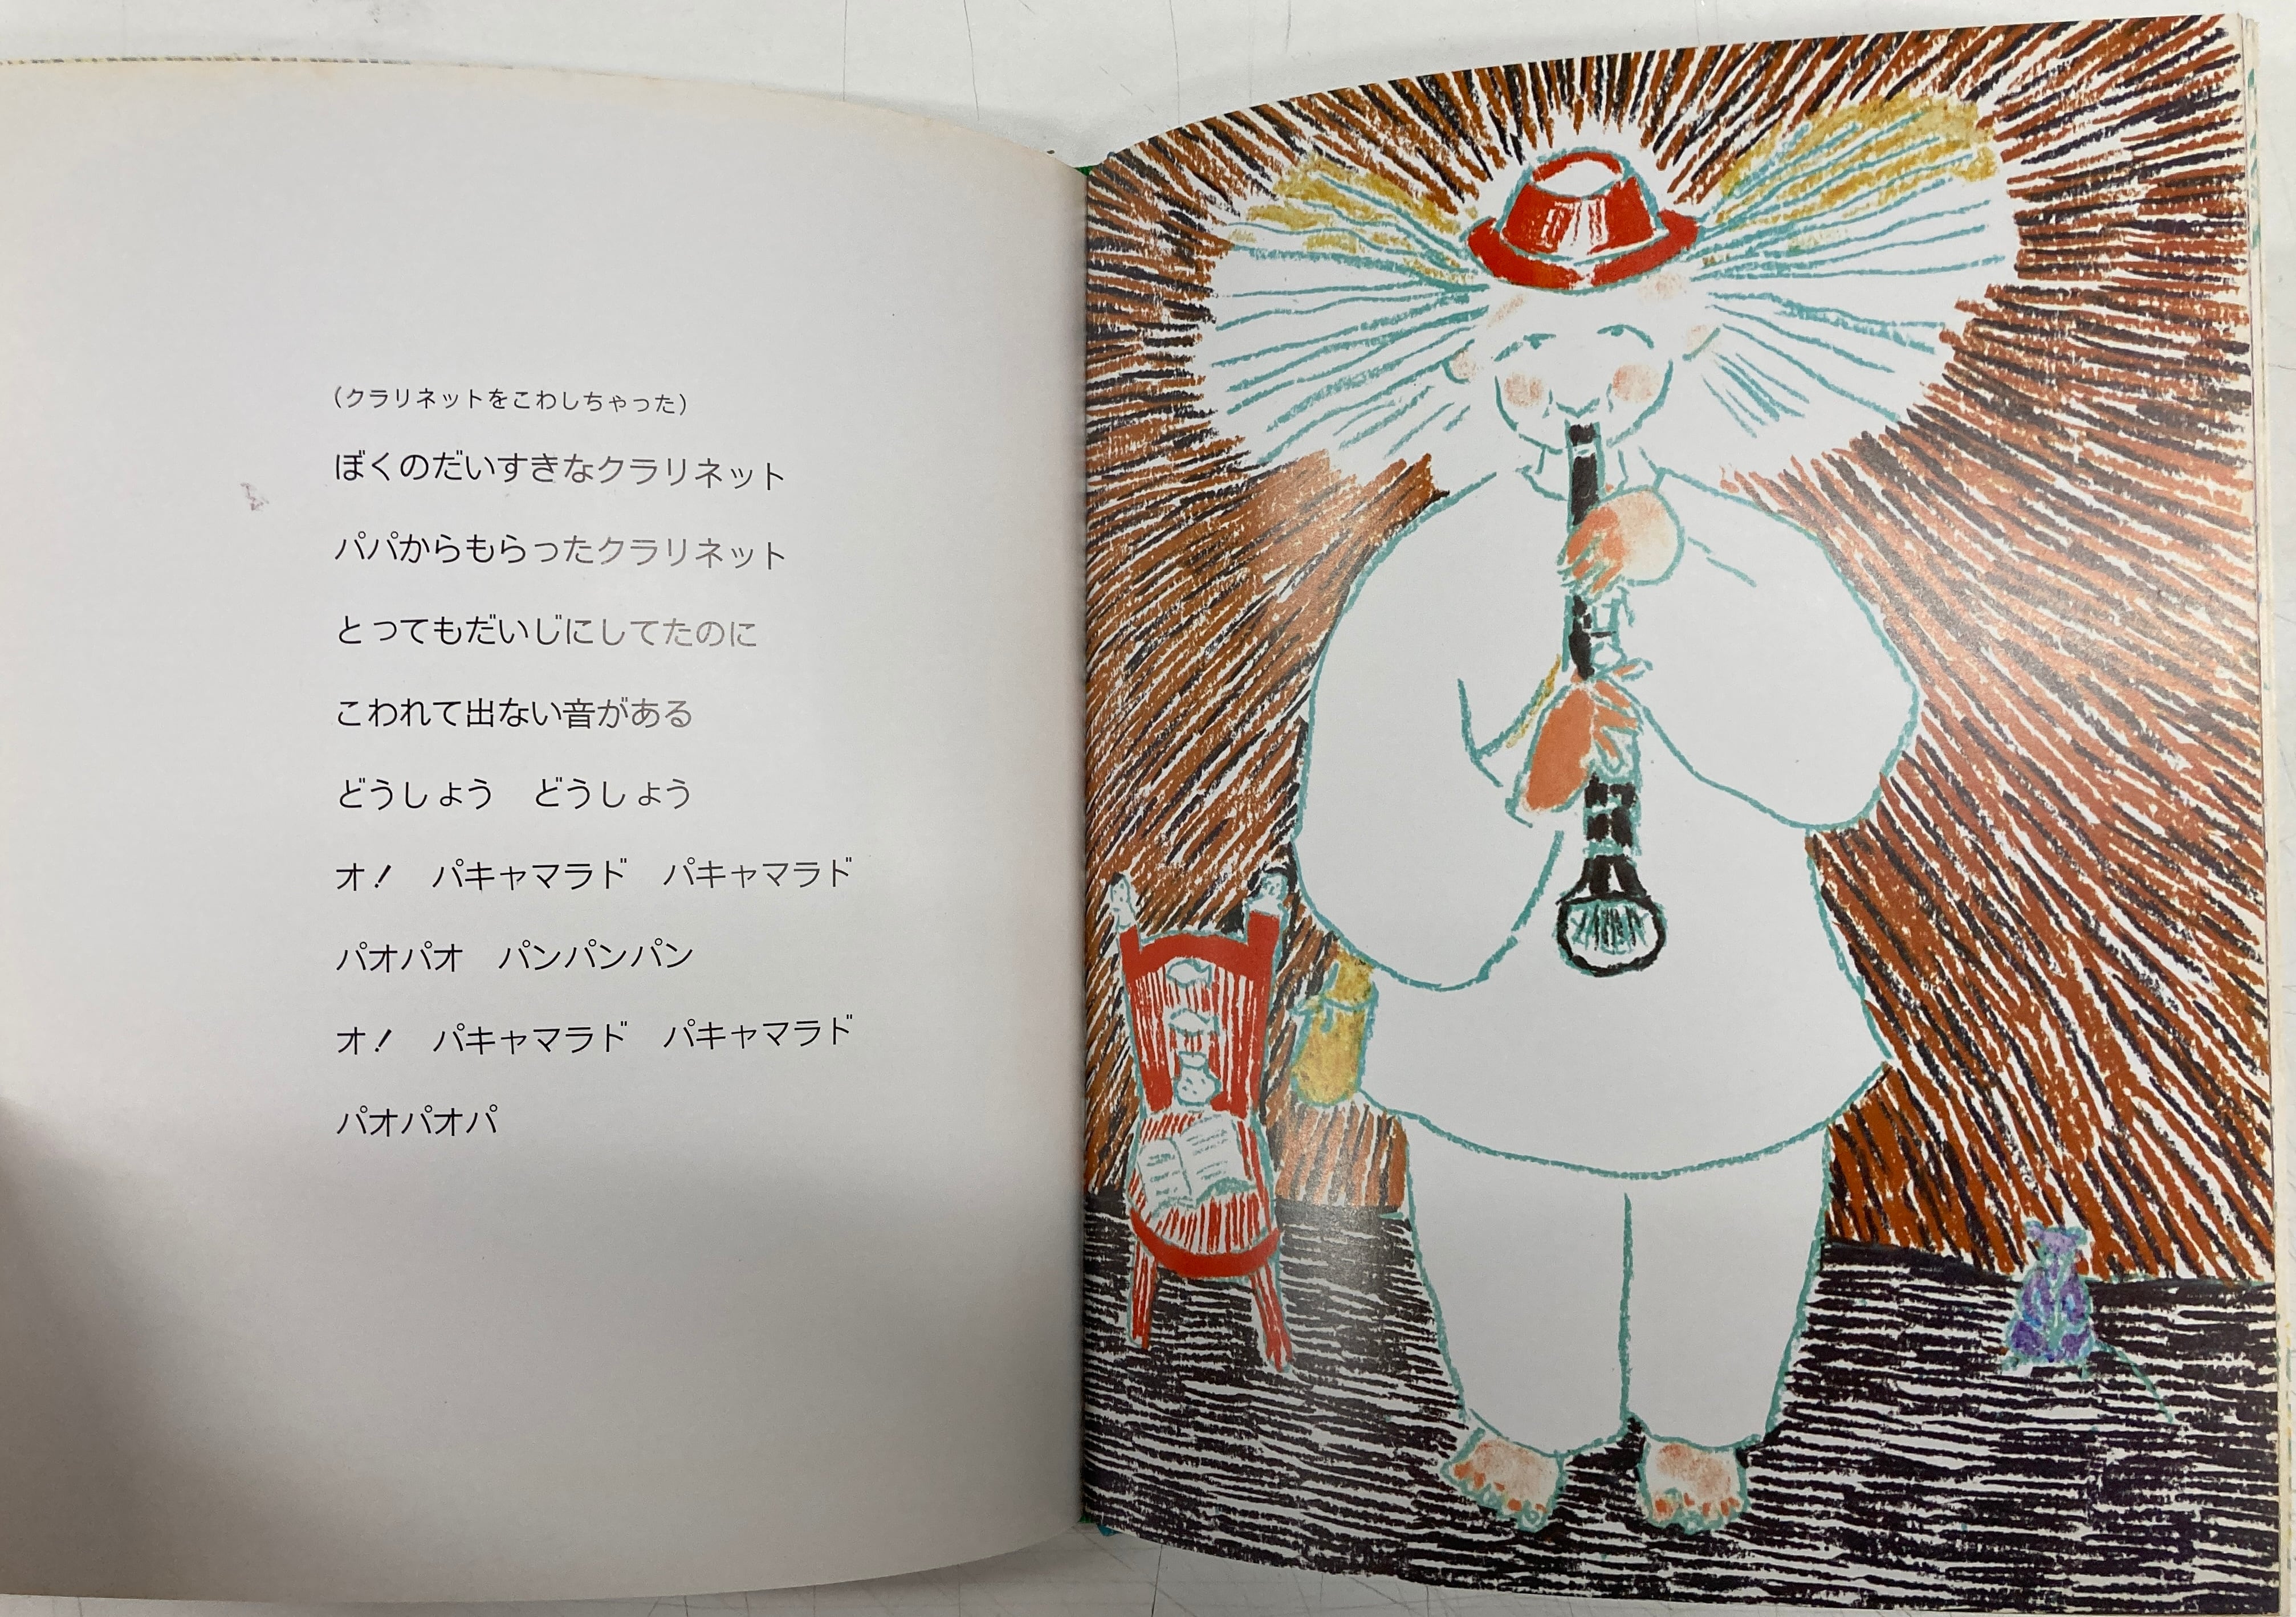 (クラリネットをこわしちゃった)
ぼくのだいすきなクラリネット
パパからもらったクラリネット
とってもだいじにしてたのに
こわれて出ない音がある
どうしょう　どうしょう
オ！　パキャマラド　パキャマラド
パオパオ　パンパンパン
オ！　パキャマラド　パキャマラド
パオパオパ